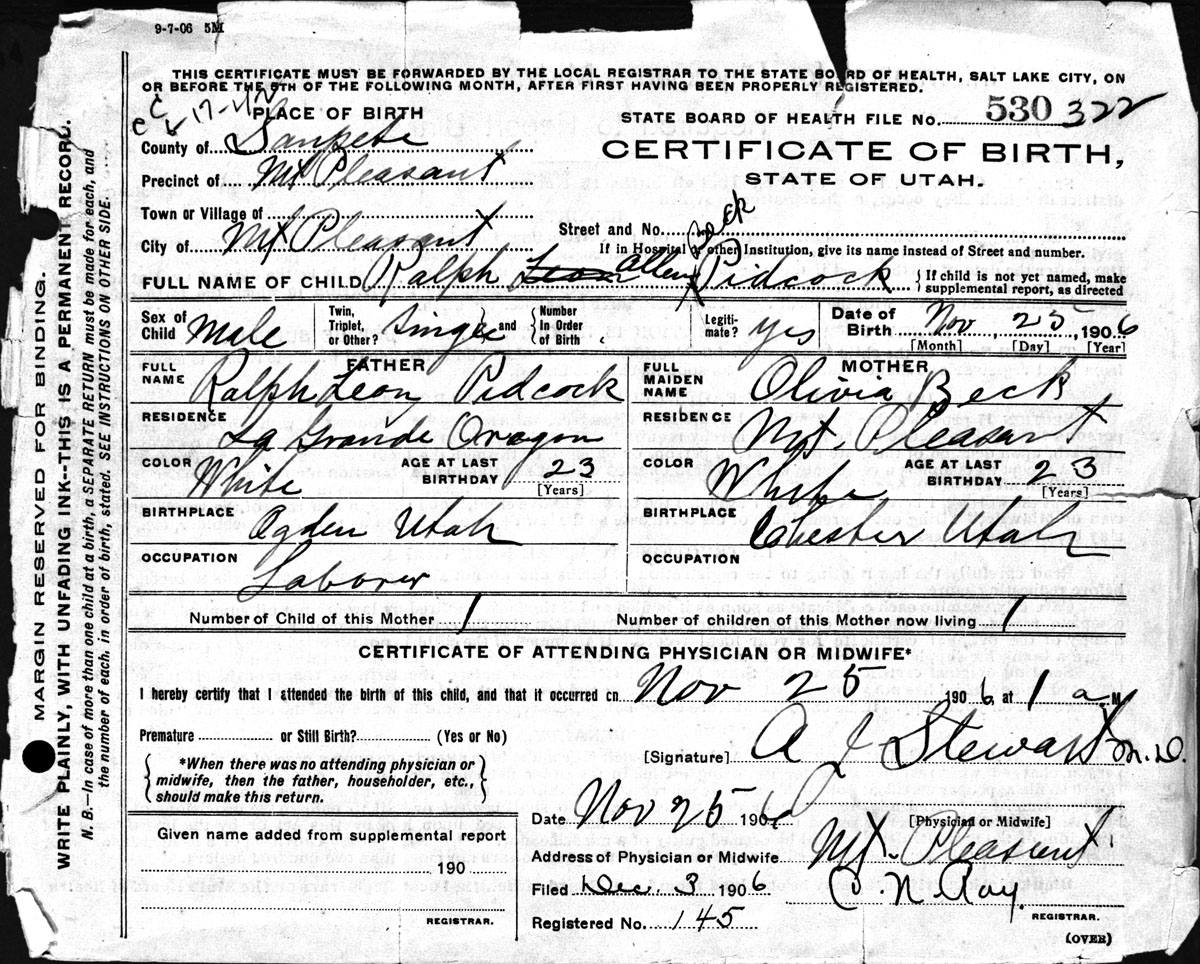 9-7-06 5M
THIS CERTIFICATE MUST BE FORWARDED BY THE LOCAL REGISTRAR TO THE STATE BOARD OF HEALTH, SALT LAKE CITY, ON
OR BEFORE THE 5TH OF THE FOLLOWING MONTH, AFTER FIRST HAVING BEEN PROPERLY REGISTERED.
PLACE OF BIRTH
STATE BOARD OF HEALTH FILE No. 530 322
County of Sanpete
CERTIFICATE OF BIRTH,
STATE OF UTAH.
Precinct of Mt Pleasant
Town or Village of
Street and No.
City of Mt Pleasant
If in Hospital or other Institution, give its name instead of Street and number.
Beck
FULL NAME OF CHILD Ralph Leon Allen Pidcock
{If child is not yet named, make
supplemental report, as directed
Sex of Child Male
Twin, Triplet, or Other? Single and {Number In Order of Birth
Legiti-mate? yes
Date of Birth Nov 25, 1906
[Month] [Day] [Year]
FATHER
FULL NAME Ralph Leon Pidcock
RESIDENCE La Grande Oregon
COLOR White
AGE AT LAST BIRTHDAY 23
[Years]
BIRTHPLACE Ogden Utah
OCCUPATION Laborer
MOTHER
FULL MAIDEN NAME Olivia Beck
RESIDENCE Mt Pleasant
COLOR White
AGE AT LAST BIRTHDAY 23
[Years]
BIRTHPLACE Chester Utah
OCCUPATION
Number of Child of this Mother 1
Number of children of this Mother now living 1
CERTIFICATE OF ATTENDING PHYSICIAN OR MIDWIFE*
I hereby certify that I attended the birth of this child, and that it occurred on Nov 25 1906 at 1 a M
Premature or Still Birth? (Yes or No)
[Signature] A J Stewart M.D.
{*When there was no attending physician or
midwife, then the father, householder, etc.,
should make this return.}
Date Nov 25 1906
[Physician or Midwife]
Address of Physician or Midwife Mt. Pleasant
Given name added from supplemental report
190
REGISTRAR.
Filed Dec. 3 1906
REGISTRAR.
Registered No. 145
(OVER)
MARGIN RESERVED FOR BINDING.
WRITE PLAINLY, WITH UNFADING INK--THIS IS A PERMANENT RECORD.
N. B.—In case of more than one child at a birth, a SEPARATE RETURN must be made for each, and
the number of each, in order of birth, stated. SEE INSTRUCTIONS ON OTHER SIDE.